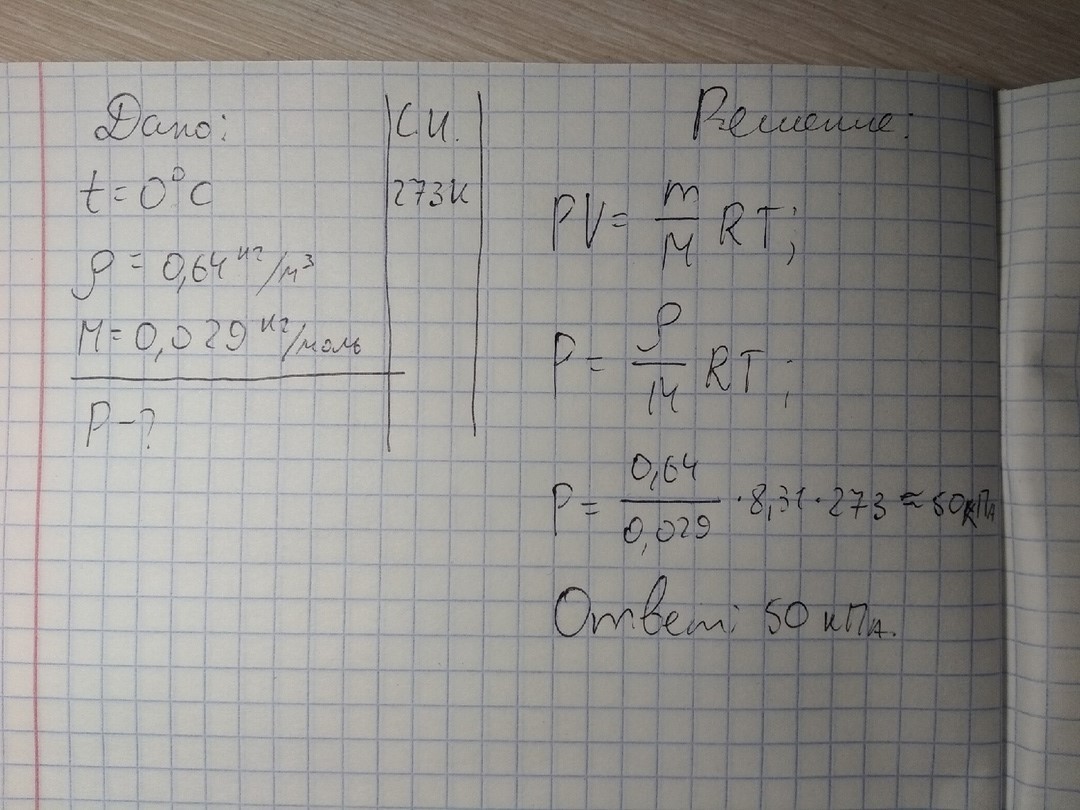 Дано:
С.И.
t = 0°C
273К
ρ = 0,64 кг/м³
M = 0,029 кг/моль
P - ?
Решение:
PV = m/M RT;
P = ρ/M RT;
P = 0,64/0,029 · 8,31 · 273 ≈ 50кПа
Ответ: 50 кПа.